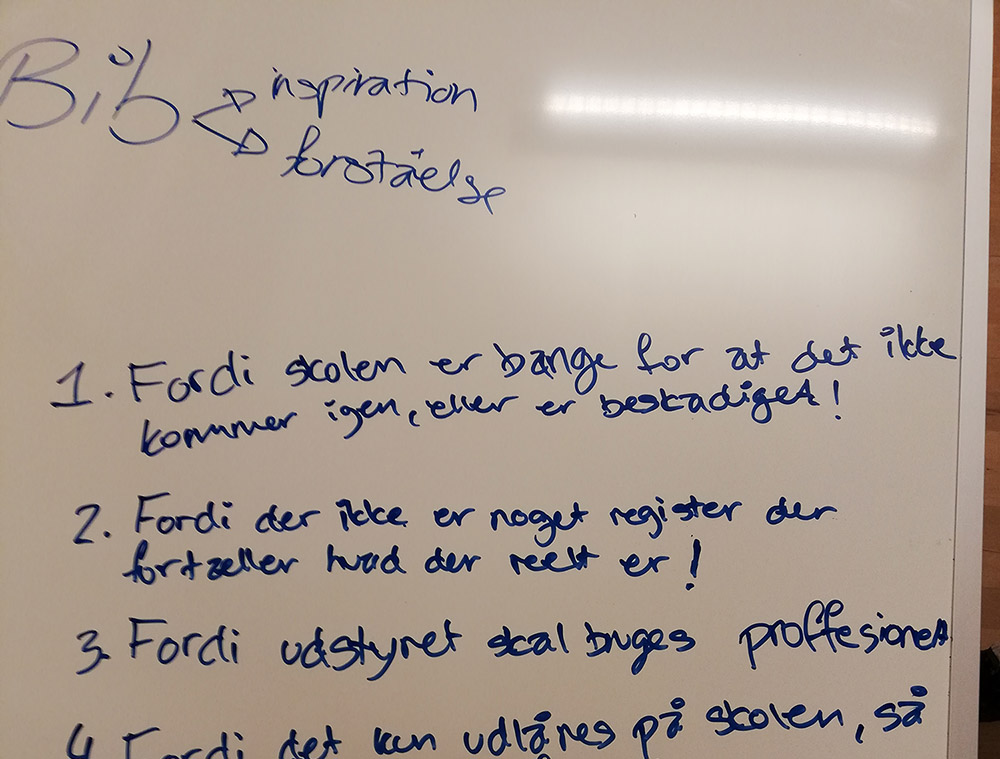 Bib
inspiration
forståelse
1. Fordi skolen er bange for at det ikke
kommer igen, eller er beskadiget!
2. Fordi der ikke er noget register der
fortæller hvad der reelt er!
3. Fordi udstyret skal bruges proffesionelt
4. Fordi det kun udlånes på skolen, så